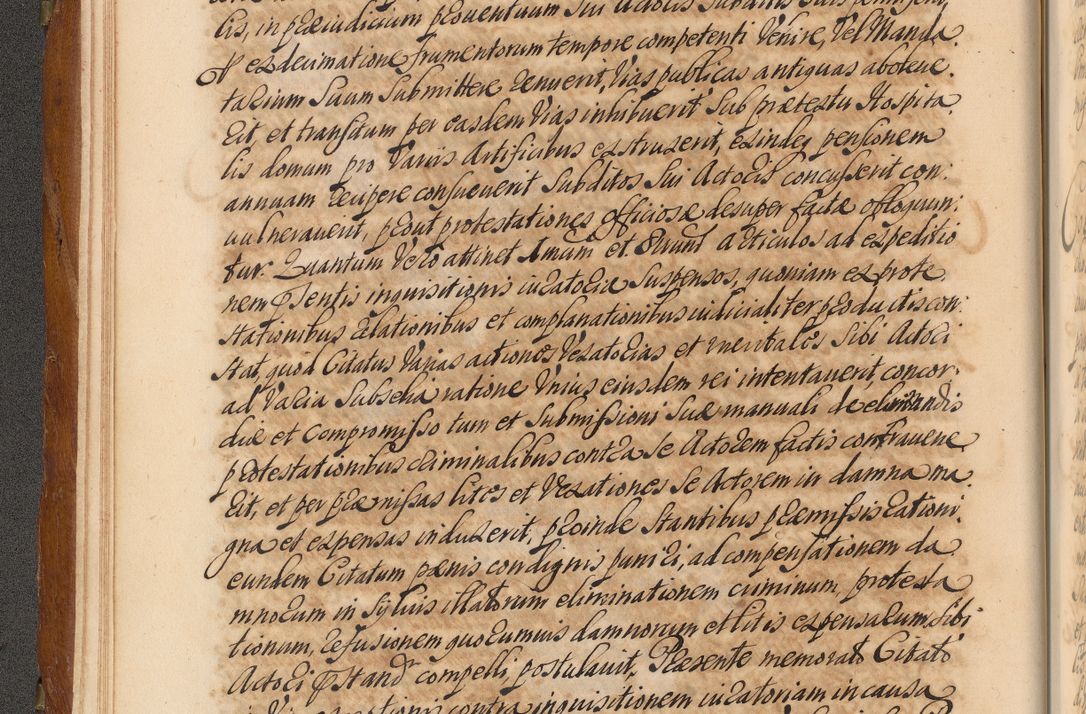 lis, in præiudicium proventuum sui Actoris subditis suis
et ex decimatione frumentorum tempore competenti venire, vel Manda
tarium suum submittere renuerit, vias publicas antiquas aboleve
rit, et transitum per easdem vias inhibuerit sub prætextu Hospita
lis domum pro variis Artificibus exstruxerit, exindeq pensionem
annuam recipere consueverit subditos sui Actoris concusserit con:
vulneraverit, prout protestationes officiosæ desuper factæ
tur. Quantum vero attinet 1mum et articulos ad expeditio
nem præsentis inquisitionis iuratoria suspensos, quoniam ex prote
stationibus relationibus et complanationibus iudicialiter productis con:
stat, quod Citatus varias actiones vexatorias et Actori
ad varia subselia ratione unius eiusdem rei intentaverit, concor:
diæ et compromisso tum et submissioni suæ manuali de eliminandis
protestationibus criminalibus contra se Actorem factis contravene
rit, et per præmissas lites et vexationes se Actorem in damna ma
gna et expensas induxerit, proinde stantibus præmissis rationi,
eundem Citatum pænis condignis puniri, ad compensationem da
mnorum in sylvis illatorum eliminationem criminum, protesta
tionum, refusionem quorumvis damnorum et litis expensarum, sibi
Actori præstand compelli, postulavit, Præsente memorato Citato
contra inquisitionem iuratoriam in causa